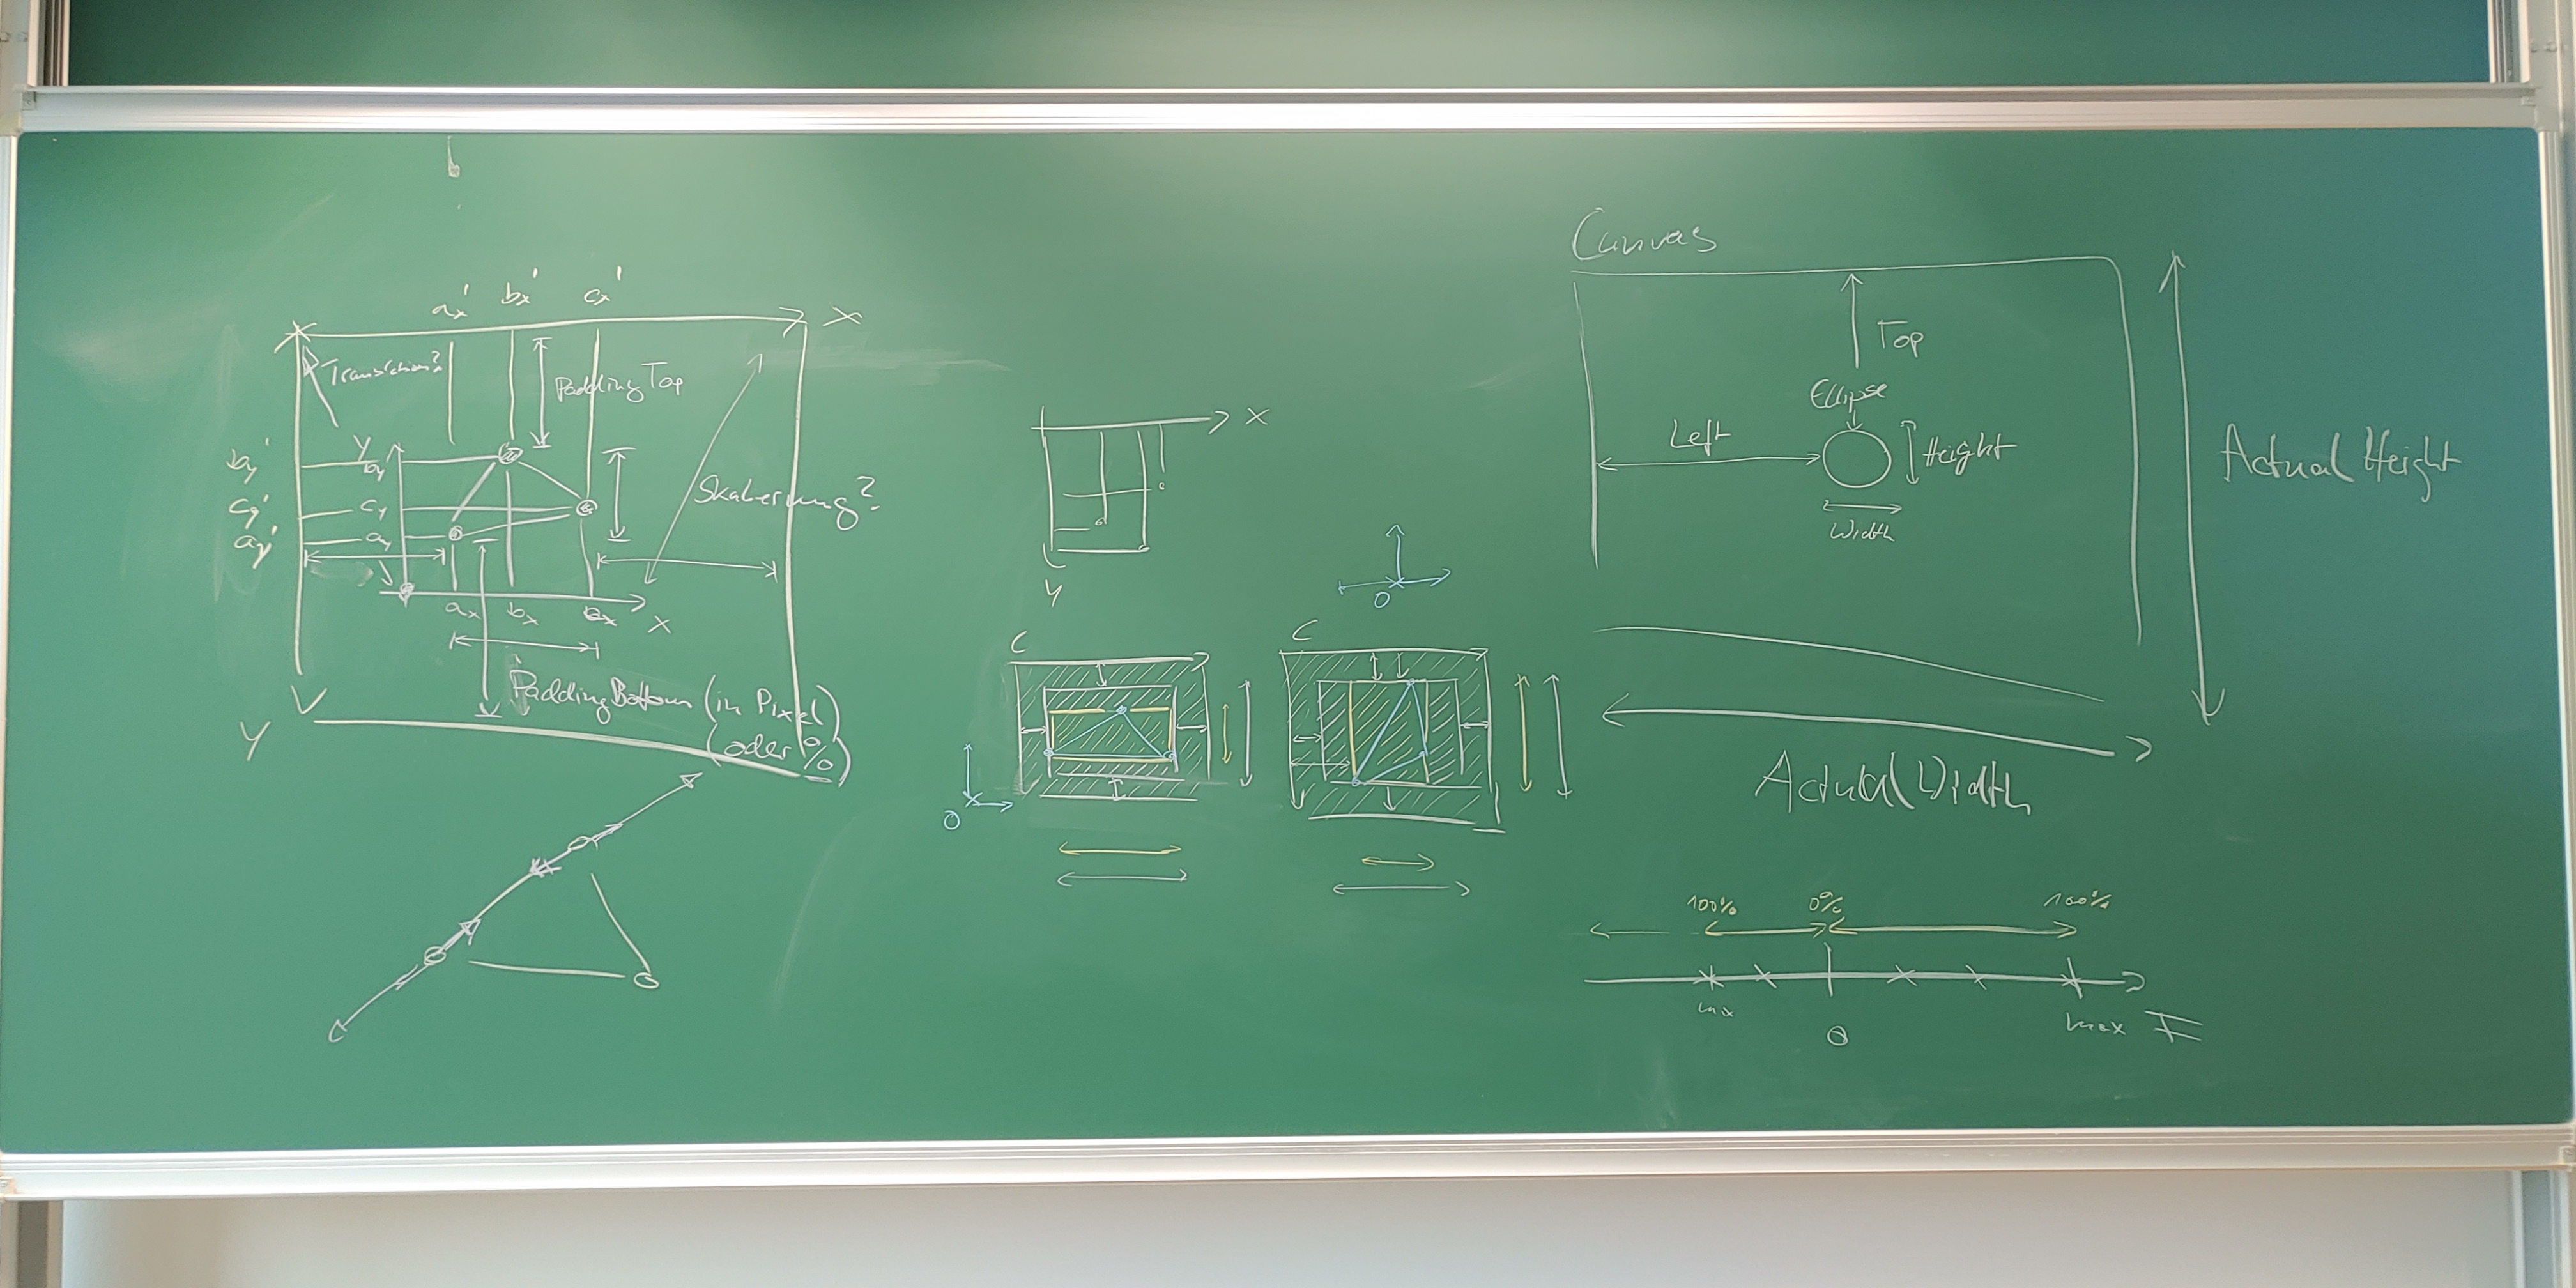 ax' bx' cx'
X
Translation?
Padding Top
Y
by' by
cy' cy
ay' ay
Skalierung?
ax bx cx X
Padding Bottom (in Pixel)
(oder %)
Y
X
Y
O
C
C
O
Canvas
Top
Ellipse
Left
Height
Width
Actual Height
Actual Width
100% 0% 100%
min
0
max F